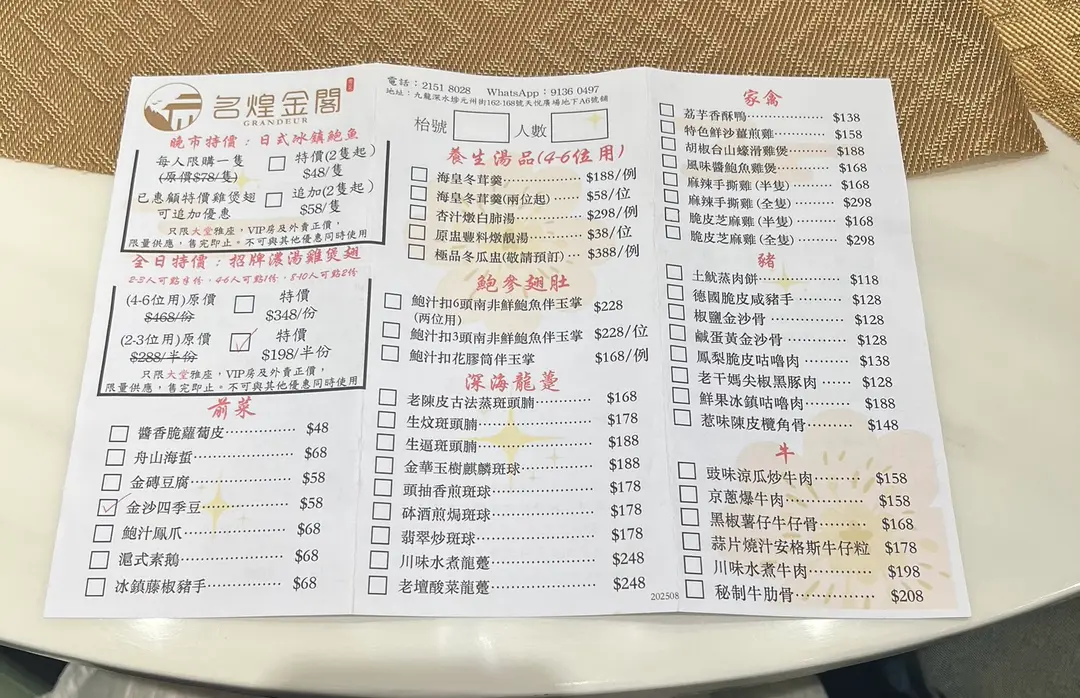 名煌金閣
GRANDEUR
晚市特價：日式冰鎮鮑魚
每人限購一隻
(原價$78/隻)
特價(2隻起)
$48/隻
已惠顧特價雞煲翅
可追加優惠
追加(2隻起)
$58/隻
只限大堂雅座，VIP房及外賣正價，
限量供應，售完即止。不可與其他優惠同時使用
全日特價：招牌濃湯雞煲翅
2-3人可點半份，4-6人可點1份，8-10人可點2份
(4-6位用)原價
$468/份
特價
$348/份
(2-3位用)原價
$288/半份
特價
$198/半份
只限大堂雅座，VIP房及外賣正價，
限量供應，售完即止。不可與其他優惠同時使用
前菜
醬香脆蘿蔔皮 $48
舟山海蜇 $68
金磚豆腐 $58
金沙四季豆 $58
鮑汁鳳爪 $68
滬式素鵝 $68
冰鎮藤椒豬手 $68
電話：2151 8028 WhatsApp：9136 0497
地址：九龍深水埗元州街162-168號天悅廣場地下A6號鋪
枱號 人數
養生湯品(4-6位用)
海皇冬茸羹 $188/例
海皇冬茸羹(兩位起) $58/位
杏汁燉白肺湯 $298/例
原盅豐料燉靚湯 $38/位
極品冬瓜盅(敬請預訂) $388/例
鮑參翅肚
鮑汁扣6頭南非鮮鮑魚伴玉掌 $228
(兩位用)
鮑汁扣3頭南非鮮鮑魚伴玉掌 $228/位
鮑汁扣花膠筒伴玉掌 $168/例
深海龍躉
老陳皮古法蒸斑頭腩 $168
生炆斑頭腩 $178
生逼斑頭腩 $188
金華玉樹麒麟斑球 $188
頭抽香煎斑球 $178
砵酒煎焗斑球 $178
翡翠炒斑球 $178
川味水煮龍躉 $248
老壇酸菜龍躉 $248
202508
家禽
荔芋香酥鴨 $138
特色鮮沙薑煎雞 $158
胡椒台山蠔滑雞煲 $188
風味醬鮑魚雞煲 $168
麻辣手撕雞(半隻) $168
麻辣手撕雞(全隻) $298
脆皮芝麻雞(半隻) $168
脆皮芝麻雞(全隻) $298
豬
土魷蒸肉餅 $118
德國脆皮咸豬手 $128
椒鹽金沙骨 $128
鹹蛋黃金沙骨 $128
鳳梨脆皮咕嚕肉 $138
老干媽尖椒黑豚肉 $128
鮮果冰鎮咕嚕肉 $188
惹味陳皮欖角骨 $148
牛
豉味涼瓜炒牛肉 $158
京蔥爆牛肉 $158
黑椒薯仔牛仔骨 $168
蒜片燒汁安格斯牛仔粒 $178
川味水煮牛肉 $198
秘制牛肋骨 $208